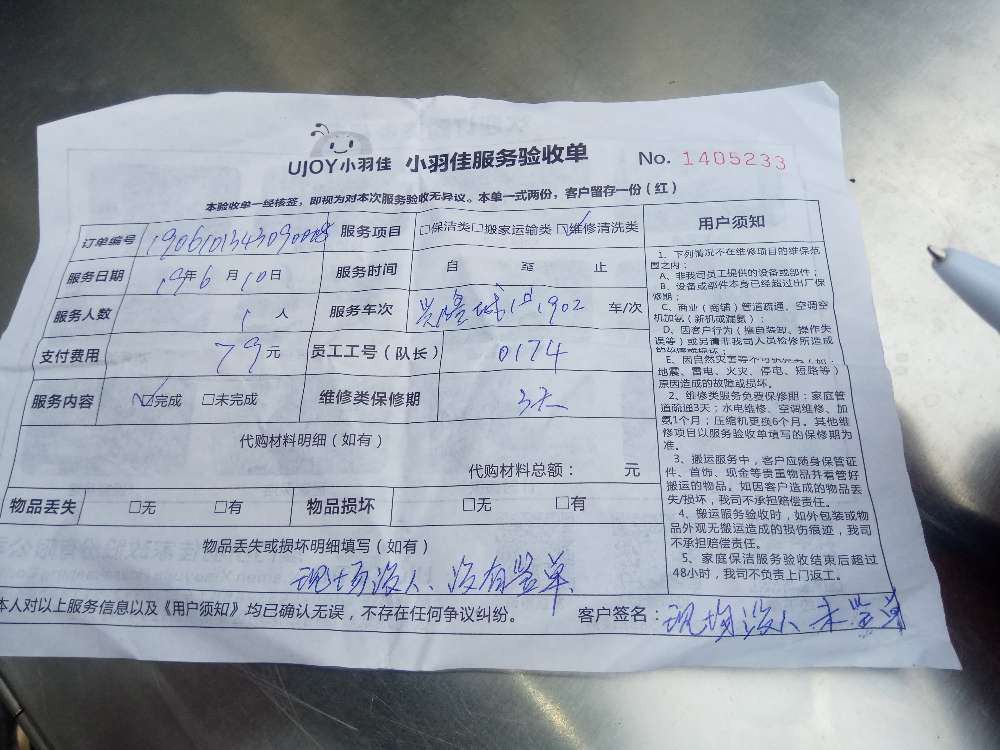 UJOY小羽佳 小羽佳服务验收单 No. 1405233
本验收单一经核签，即视为对本次服务验收无异议。本单一式两份，客户留存一份（红）
订单编号 服务项目 □保洁类□搬家运输类☑维修清洗类
服务日期 19年6月10日 服务时间 自 至 止
服务人数 1人 服务车次 1902 车/次
支付费用 79元 员工工号（队长） 0174
服务内容 ☑完成 □未完成 维修类保修期 3天
代购材料明细（如有）
代购材料总额： 元
物品丢失 □无 □有 物品损坏 □无 □有
物品丢失或损坏明细填写（如有）
现场没人、没有签单
本人对以上服务信息以及《用户须知》均已确认无误，不存在任何争议纠纷。 客户签名：现场没人 未签单
用户须知
1、下列情况不在维修项目的维保范
围之内：
A、非我司员工提供的设备或部件；
B、设备或部件本身已经超过出厂保
修期；
C、商业（商铺）管道疏通、空调空
机加氨（新机或漏氨）；
D、因客户行为（擅自装卸、操作失
误等）或另请非我司人员检修所造成
E、因自然灾害等不可抗
地震、雷电、火灾、停电、短路等）
原因造成的故障或损坏。
2、维修类服务免费保修期：家庭管
道疏通3天；水电维修、空调维修、加
氨1个月；压缩机更换6个月。其他维
修项目以服务验收单填写的保修期为
准。
3、搬运服务中，客户应随身保管证
件、首饰、现金等贵重物品并看管好
搬运的物品。如因客户造成的物品丢
失/损坏，我司不承担赔偿责任。
4、搬运服务验收时，如外包装或物
品外观无搬运造成的损伤痕迹，我司
不承担赔偿责任。
5、家庭保洁服务验收结束后超过
48小时，我司不负责上门返工。